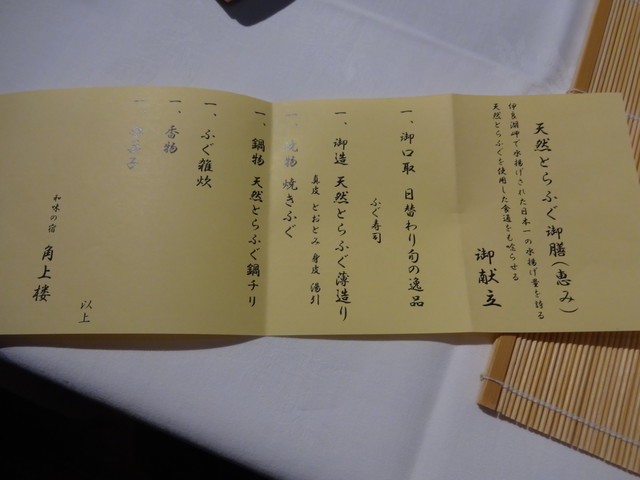 天然とらふぐ御膳(恵み)
伊良湖岬で水揚げされた日本一の水揚げ量を誇る
天然とらふぐを使用した食通をも唸らせる
御献立
一、御口取 日替わり旬の逸品
ふぐ寿司
一、御造 天然とらふぐ薄造り
真皮 とおとみ 身皮 湯引
一、焼物 焼きふぐ
一、鍋物 天然とらふぐ鍋チリ
一、ふぐ雑炊
一、香物
一、御菓子
以上
和味の宿 角上楼